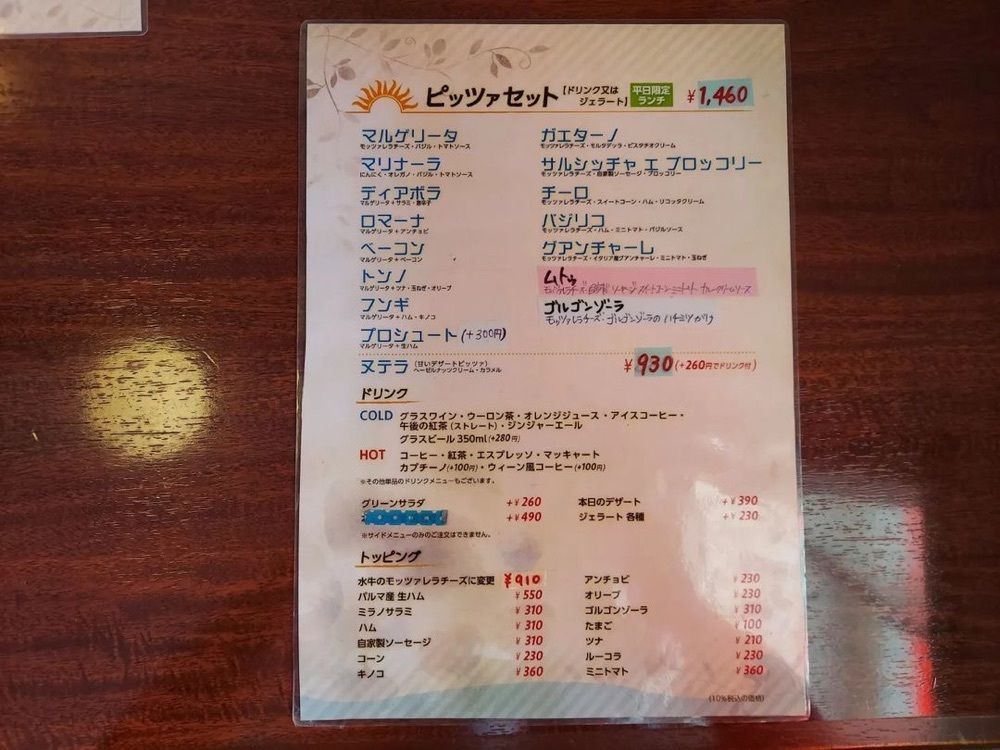 ピッツァセット 【ドリンク又はジェラート】 平日限定ランチ ￥1,460
マルゲリータ
モッツァレラチーズ・バジル・トマトソース
マリナーラ
にんにく・オレガノ・バジル・トマトソース
ディアボラ
マルゲリータ+サラミ・唐辛子
ロマーナ
マルゲリータ+アンチョビ
ベーコン
マルゲリータ+ベーコン
トンノ
マルゲリータ+ツナ・玉ねぎ・オリーブ
フンギ
マルゲリータ+ハム・キノコ
プロシュート (+300円)
マルゲリータ+生ハム
ガエターノ
モッツァレラチーズ・モルタデッラ・ピスタチオクリーム
サルシッチャ エ ブロッコリー
モッツァレラチーズ・自家製ソーセージ・ブロッコリー
チーロ
モッツァレラチーズ・スイートコーン・ハム・リコッタクリーム
バジリコ
モッツァレラチーズ・ハム・ミニトマト・バジルソース
グアンチャーレ
モッツァレラチーズ・イタリア産グアンチャーレ・ミニトマト・玉ねぎ
ムトゥ
モッツァレラチーズ・自家製ソーセージ スイートコーン ミニトマト カレークリームソース
ゴルゴンゾーラ
モッツァレラチーズ・ゴルゴンゾーラの ハチミツがけ
ヌテラ (甘いデザートピッツァ) ヘーゼルナッツクリーム・カラメル ￥930 (+260円でドリンク付)
ドリンク
COLD グラスワイン・ウーロン茶・オレンジジュース・アイスコーヒー・
午後の紅茶(ストレート)・ジンジャーエール
グラスビール 350ml(+280円)
HOT コーヒー・紅茶・エスプレッソ・マッキャート
カプチーノ(+100円)・ウィーン風コーヒー(+100円)
※その他単品のドリンクメニューもございます。
グリーンサラダ +￥260
+￥490
本日のデザート +￥390
ジェラート 各種 +￥230
※サイドメニューのみのご注文はできません。
トッピング
水牛のモッツァレラチーズに変更 ￥910
パルマ産 生ハム ￥550
ミラノサラミ ￥310
ハム ￥310
自家製ソーセージ ￥310
コーン ￥230
キノコ ￥360
アンチョビ ￥230
オリーブ ￥230
ゴルゴンゾーラ ￥310
たまご ￥100
ツナ ￥210
ルーコラ ￥230
ミニトマト ￥360
(10%税込の価格)